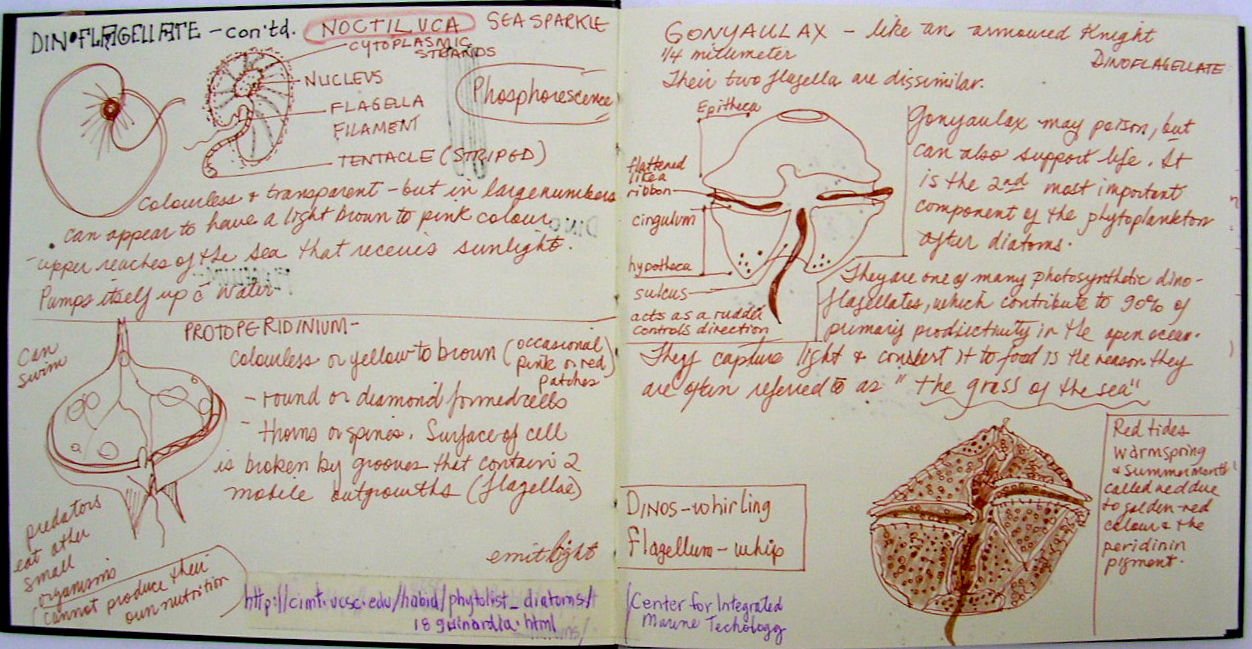 DINOFLAGELLATE - con'td.
NOCTILUCA
SEA SPARKLE
CYTOPLASMIC
STRANDS
NUCLEUS
FLAGELLA
FILAMENT
TENTACLE (STRIPED)
Phosphorescence
Colourless & transparent - but in large numbers
can appear to have a light brown to pink colour.
- upper reaches of the sea that receives sunlight.
Pumps itself up c̄ water
PROTOPERIDINIUM-
Can
swim
Colourless or yellow to brown (occasional
pink or red)
patches
- round or diamond formed cells
- thorns or spines. Surface of cell
is broken by grooves that contain 2
mobile outgrowths (flagellae)
predators
eat other
small
organisms
(cannot produce their
own nutrition
emit light
http://cimt.ucsc.edu/habid/phytolist_diatoms/
18guinardia.html
GONYAULAX - like an armoured Knight
1/4 millimeter
DINOFLAGELLATE
Their two flagella are dissimilar.
Epitheca
flattened
like a
ribbon
cingulum
hypotheca
sulcus
acts as a rudder
controls direction
Gonyaulax may poison, but
can also support life. It
is the 2nd most important
component of the phytoplankton
after diatoms.
They are one of many photosynthetic dino-
flagellates, which contribute to 90% of
primary productivity in the open ocean.
They capture light & convert it to food is the reason they
are often referred to as "the grass of the sea"
DINOS - whirling
Flagellum - whip
Red tides
warm spring
& summer month
called red due
to golden-red
colour & the
peridinin
pigment.
/Center for Integrated
Marine Techology